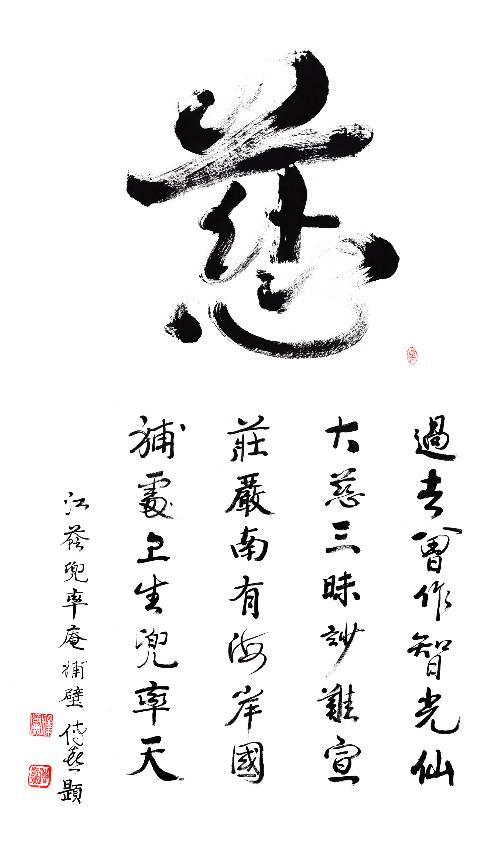 慈
過去曾作智光仙
大慈三昧妙難宣
莊嚴南有海岸國
補處上生兜率天
江蘇兜率庵補壁 傳喜題